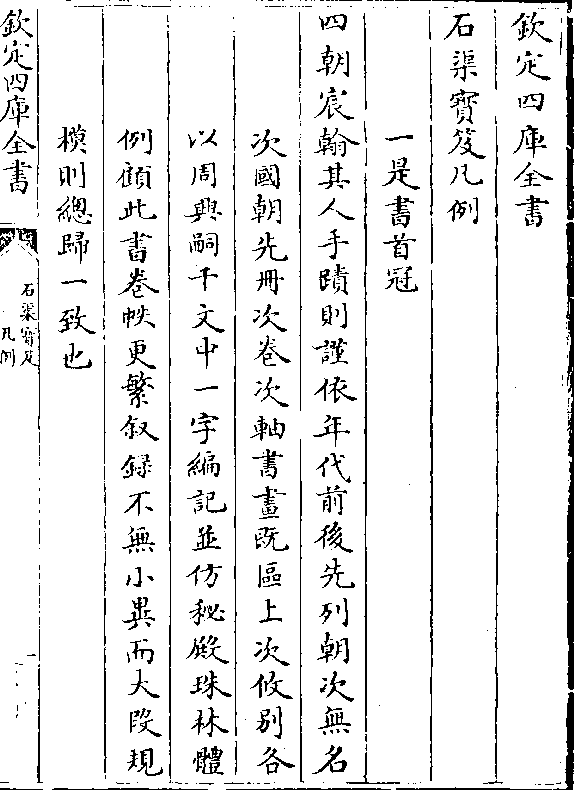 欽定四庫全書
石渠寳笈凡例
一是書首冠
四朝宸翰其人手蹟則謹依年代前後先列朝次無名
次國朝先冊次卷次軸書畫既區上次攸别各
以周興嗣千文中一字編記並仿秘殿珠林體
例顧此書卷帙更繁叙録不無小異而大段規
模則總歸一致也
欽定四庫全書
石渠寳笈
凡例
一